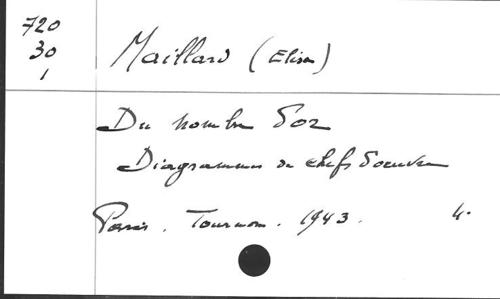 720
30
1
Maillard (Elisa)
Du nombre d'or
Diagrammes de chefs d'oeuvre
Paris. Tournon. 1943. 4.